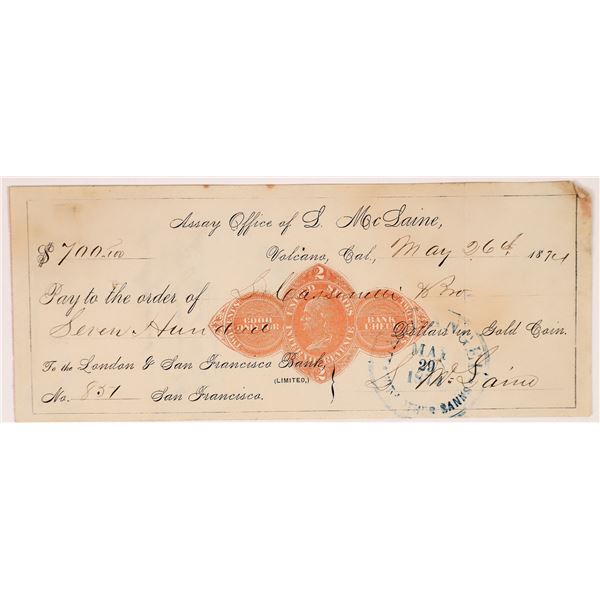 Assay Office of L. McLaine,
$700.00 Volcano, Cal., May 26th 1874
Pay to the order of L. Cassinelli & Bro
Seven Hundred Dollars in Gold Coin.
To the London & San Francisco Bank,
(LIMITED,)
No. 851 San Francisco. L. McLaine
2
UNITED STATES
GOOD ONLY FOR
BANK CHECK
MAY
29
BANKS